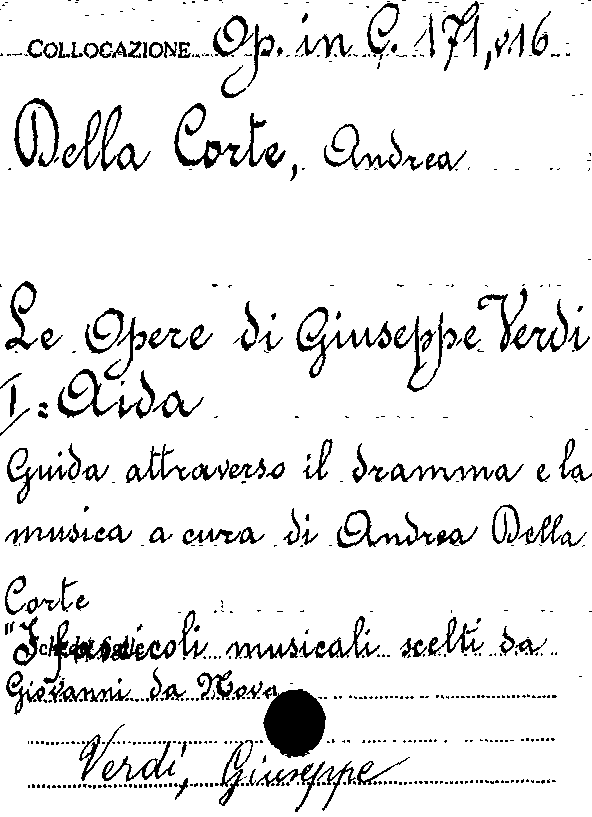 COLLOCAZIONE Op. in Ç. 171,816
Della Corte, Andrea
Le Opere di Giuseppe Verdi
I: Aida
Guida attraverso il dramma e la
musica a cura di Andrea Della
Corte
"I fascicoli musicali scelti da
Giovanni da Nova
Verdi, Giuseppe